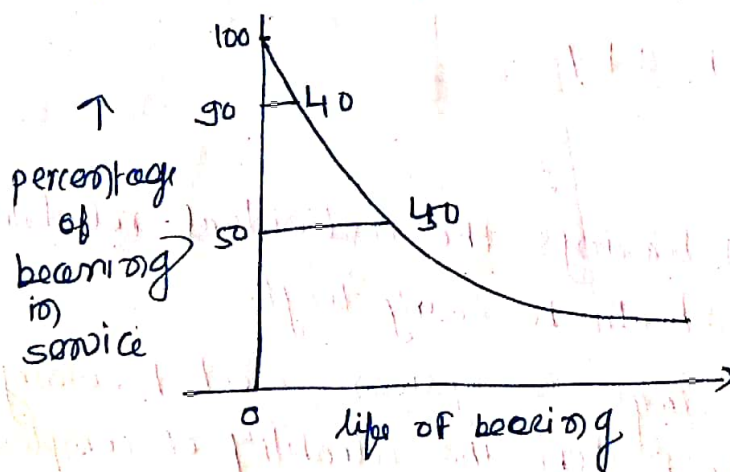 100
90
L10
↑
percentage
of
bearing
in
service
50
L50
0
life of bearing